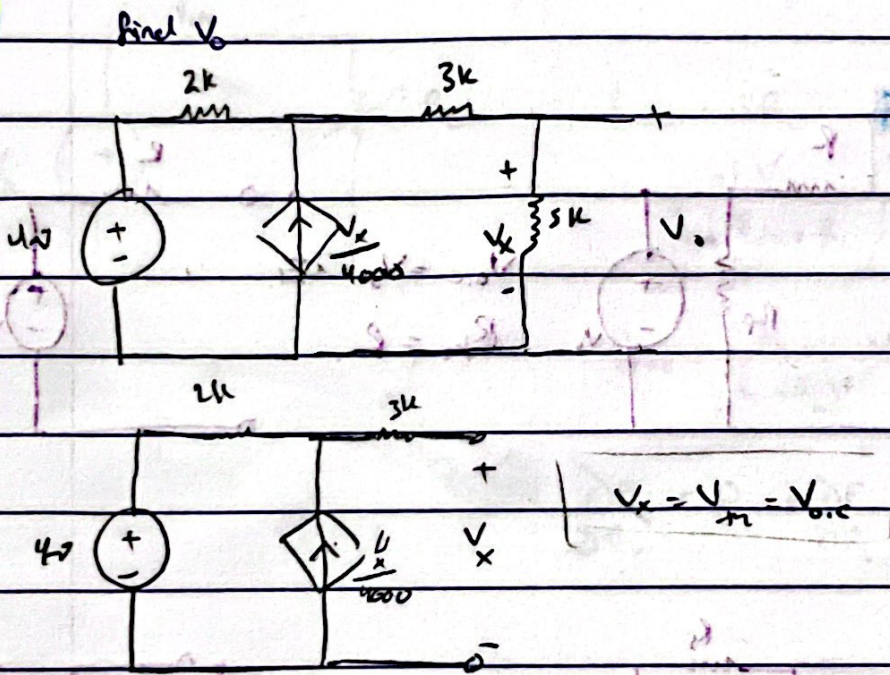 find V₀
2k 3k
+
+
4v + - Vx/4000 Vx 5k V₀
-
2k 3k
+
4v + - Vx/4000 Vx
Vx = Vth = Vo.c
-